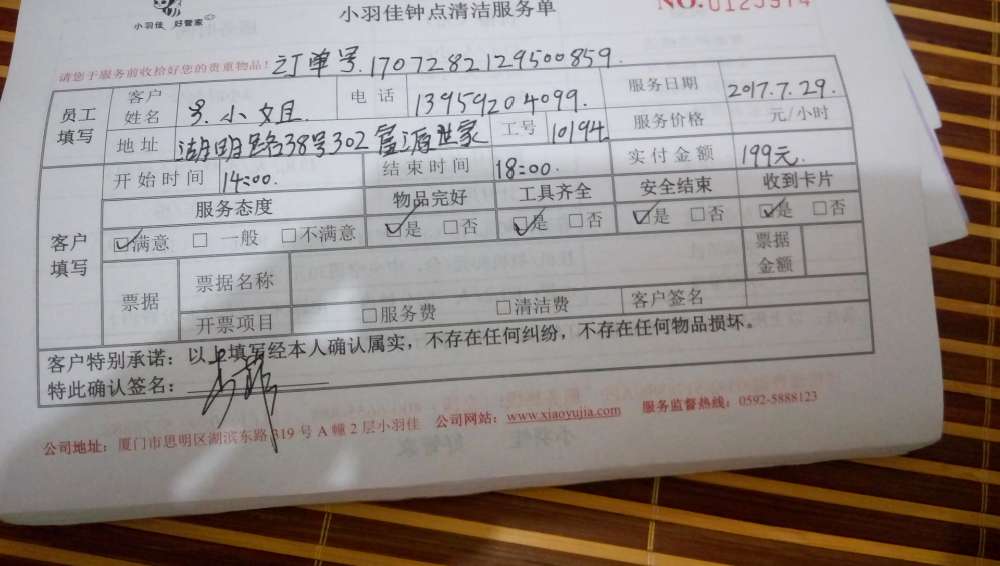 小羽佳 好管家
小羽佳钟点清洁服务单
请您于服务前收拾好您的贵重物品! 订单号.1707282129500859.
员工填写 客户姓名 小姐. 电话 13959204099. 服务日期 2017.7.29.
地址 湖明路38号302富源世家 工号 10194 服务价格 元/小时
开始时间 14:00. 结束时间 18:00. 实付金额 199元.
客户填写 服务态度 物品完好 工具齐全 安全结束 收到卡片
☑满意 □ 一般 □不满意 ☑是 □否 ☑是 □否 ☑是 □否 ☑是 □否
票据 票据名称 票据金额
开票项目 □服务费 □清洁费 客户签名
客户特别承诺：以上填写经本人确认属实，不存在任何纠纷，不存在任何物品损坏。
特此确认签名：
公司地址：厦门市思明区湖滨东路319号A幢2层小羽佳 公司网站：www.xiaoyujia.com 服务监督热线：0592-5888123